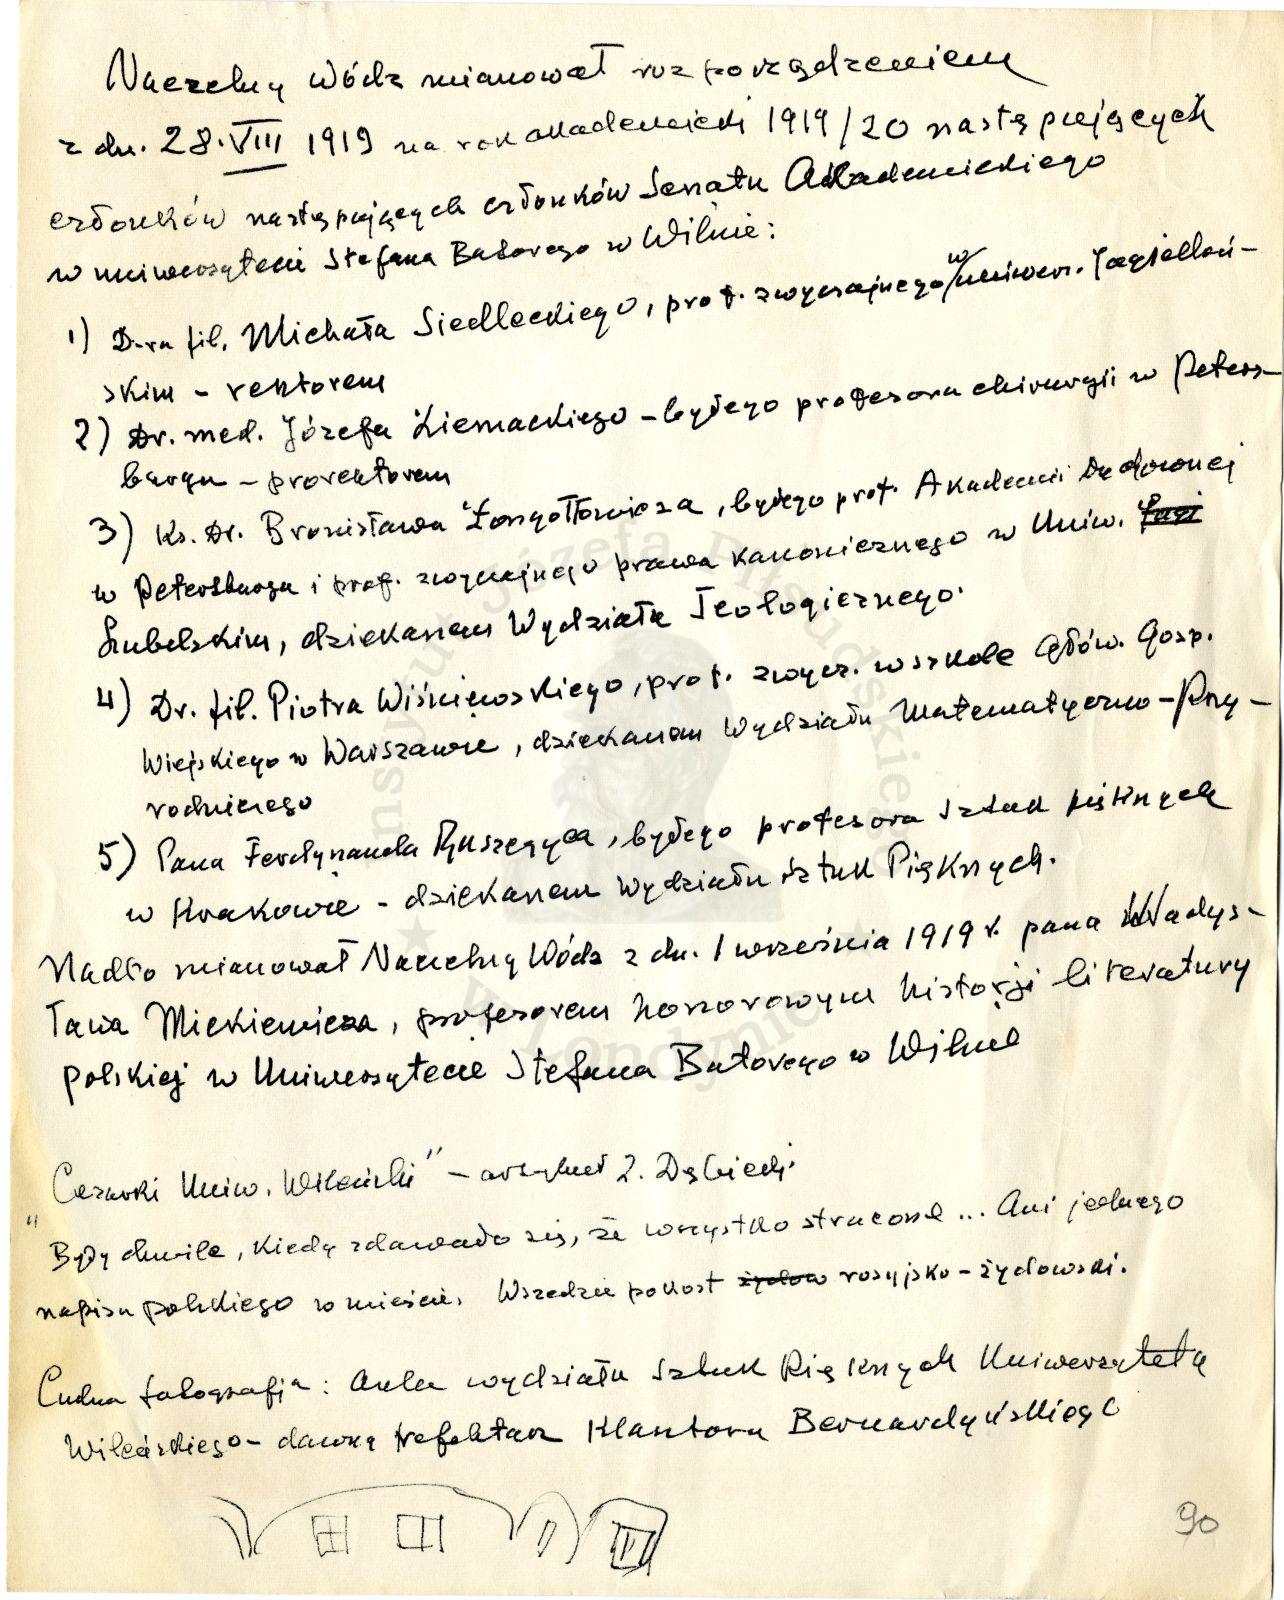 Naczelny Wódz mianował rozporządzeniem
z dn. 28.VIII 1919 na rok akademicki 1919/20 następujących
członków następujących członków Senatu Akademickiego
w uniwersytecie Stefana Batorego w Wilnie:
1) D-ra fil. Michała Siedleckiego, prof. zwyczajnego w uniwer. Jagielloń-
skim - rektorem
2) Dr. med. Józefa Ziemackiego - byłego profesora chirurgii w Peters-
burgu - prorektorem
3) Ks. Dr. Bronisława Żongołłowicza, byłego prof. Akademii Duchownej
w Petersburgu i prof. zwyczajnego prawa kanonicznego w Uniw.
Lubelskim, dziekanem Wydziału Teologicznego.
4) Dr. fil. Piotra Wiśniewskiego, prof. zwycz. w szkole Głów. Gosp.
Wiejskiego w Warszawie, dziekanem Wydziału Matematyczno-Przy-
rodniczego
5) Pana Ferdynanda Ruszczyca, byłego profesora Sztuk pięknych
w Krakowie - dziekanem Wydziału Sztuk Pięknych.
Nadto mianował Naczelny Wódz z dn. 1 września 1919 r. pana Władys-
ława Mickiewicza, profesorem honorowym historji literatury
polskiej w Uniwersytecie Stefana Batorego w Wilnie
Uniw. Wileński" - artykuł Z. Dębicki
"Były chwile, kiedy zdawało się, że wszystko stracone... Ani jednego
napisu polskiego w mieście. Wszędzie pokost żydow rosyjsko-żydowski.
Cudna fotografja: Aula wydziału Sztuk Pięknych Uniwersytetu
Wileńskiego - dawny refektarz Klasztoru Bernardyńskiego
90
Instytut Józefa Piłsudskiego
w Londynie